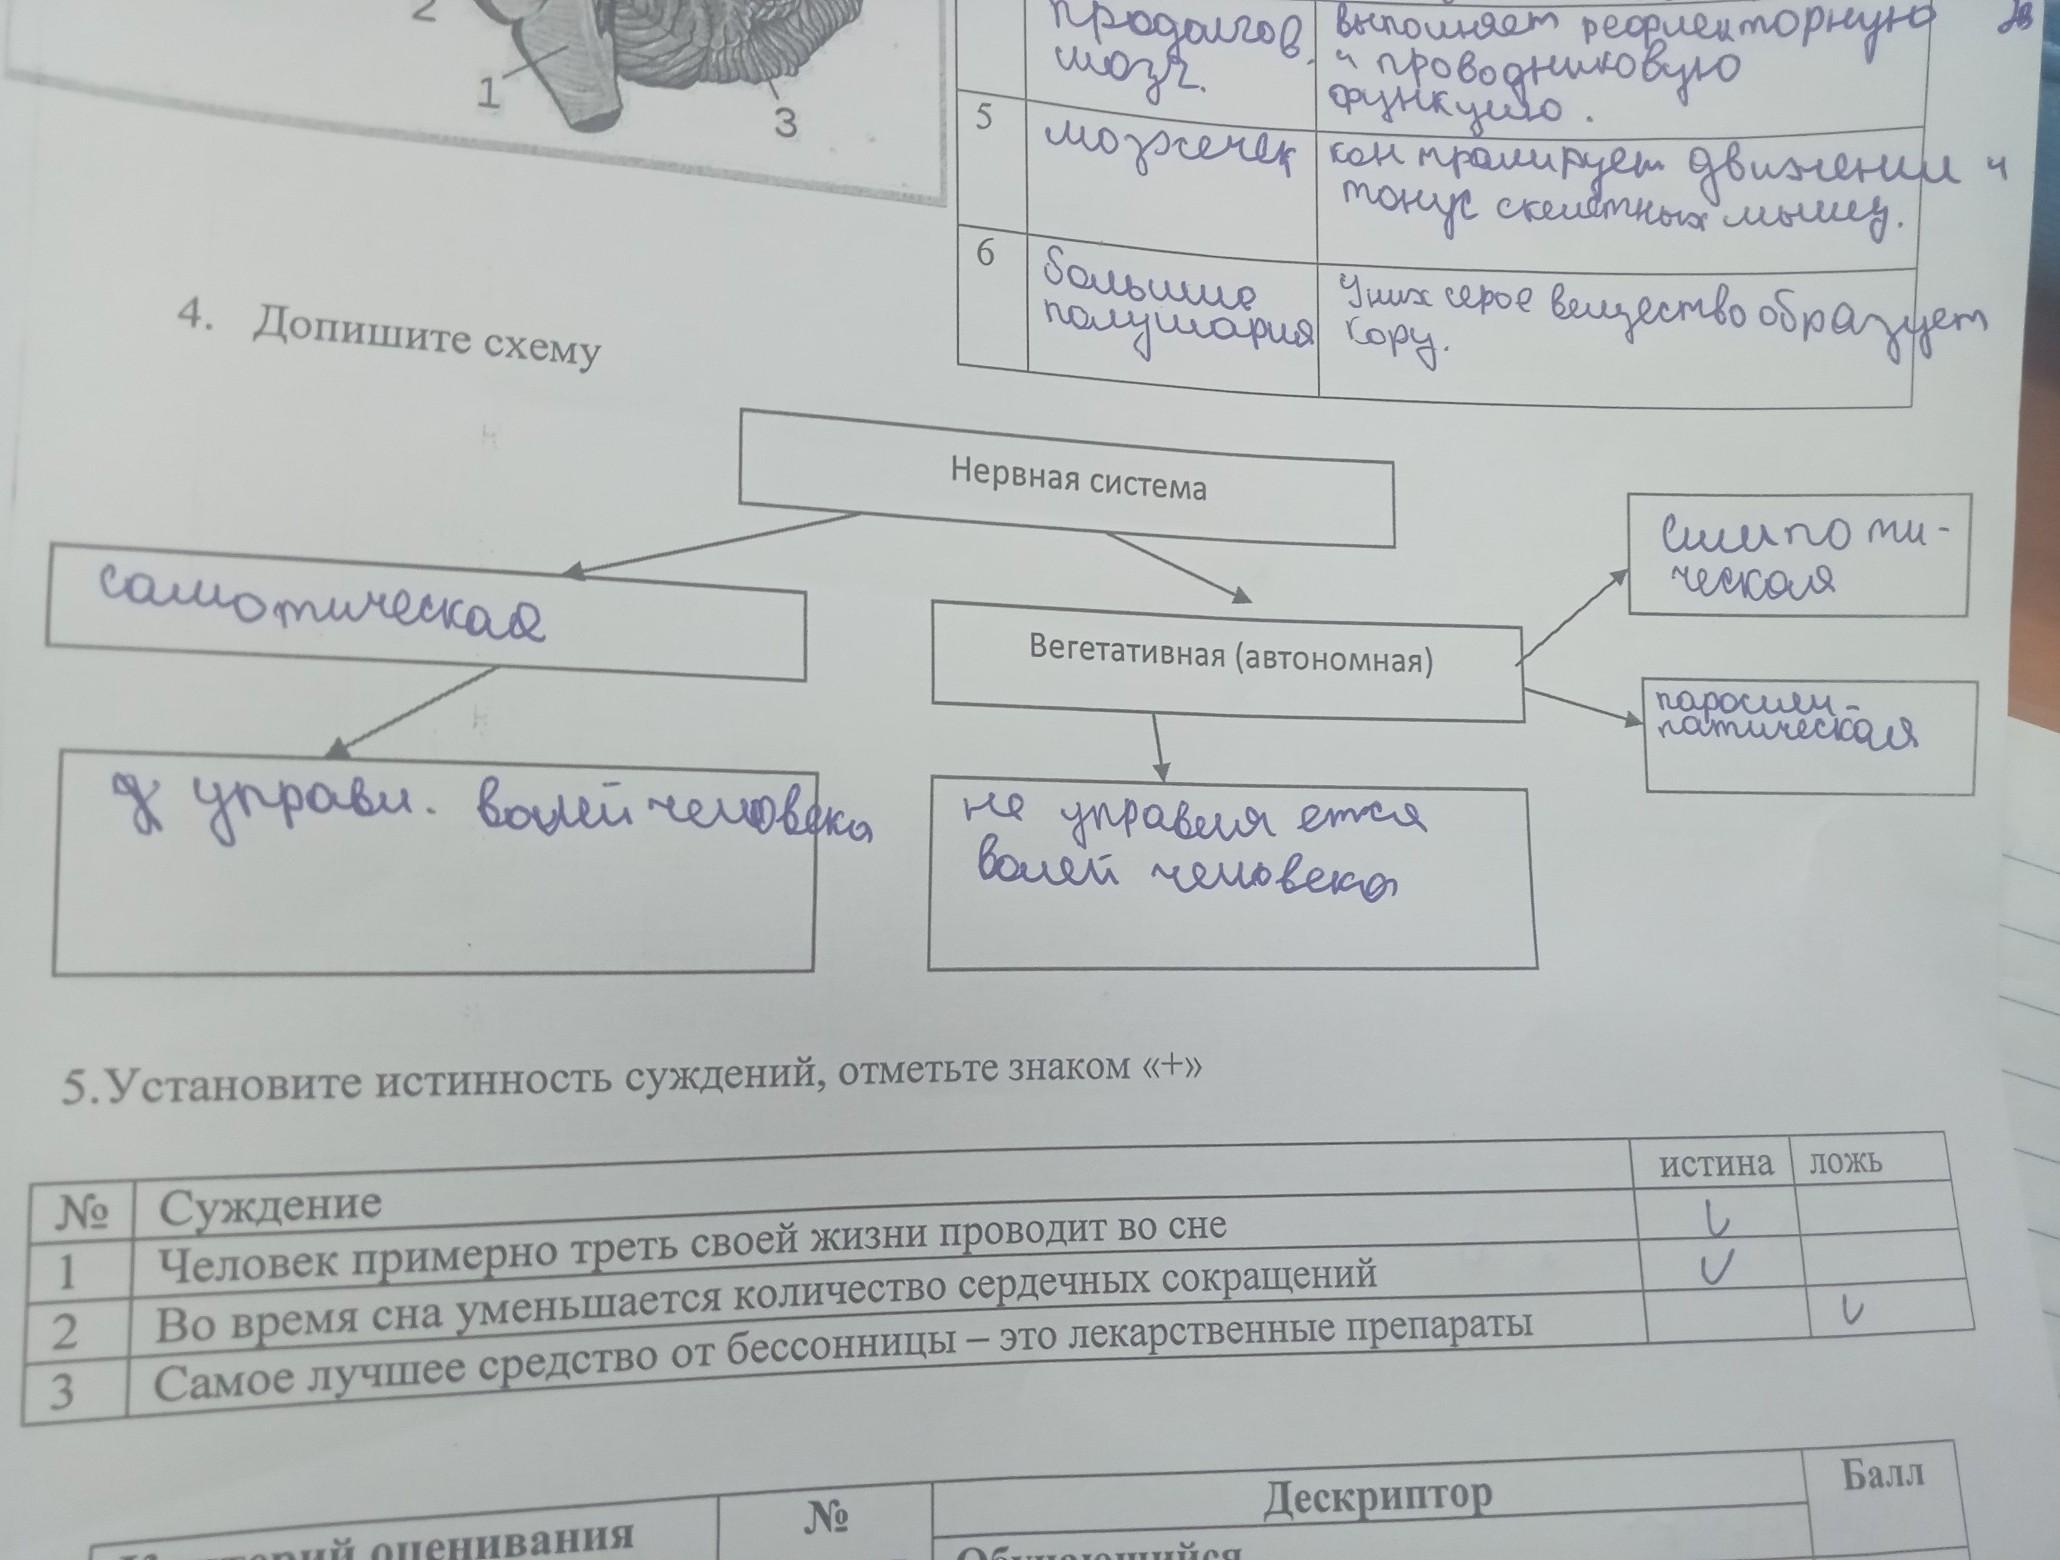 2
1
3
продолгов.
мозг.
выполняет рефлекторную
и проводниковую
функцию.
5
мозжечек
контралирует движении и
тонус скелетных мышц.
6
большие
полушария
У них серое вещество образует
кору.
4. Допишите схему
Нервная система
самотическая
Вегетативная (автономная)
симпоти-
ческая
паросим-
патическая
управл. волей человека
не управляется
волей человека
5.Установите истинность суждений, отметьте знаком «+»
№ Суждение истина ложь
1 Человек примерно треть своей жизни проводит во сне
2 Во время сна уменьшается количество сердечных сокращений
3 Самое лучшее средство от бессонницы – это лекарственные препараты
оценивания № Дескриптор Балл
Обучающийся